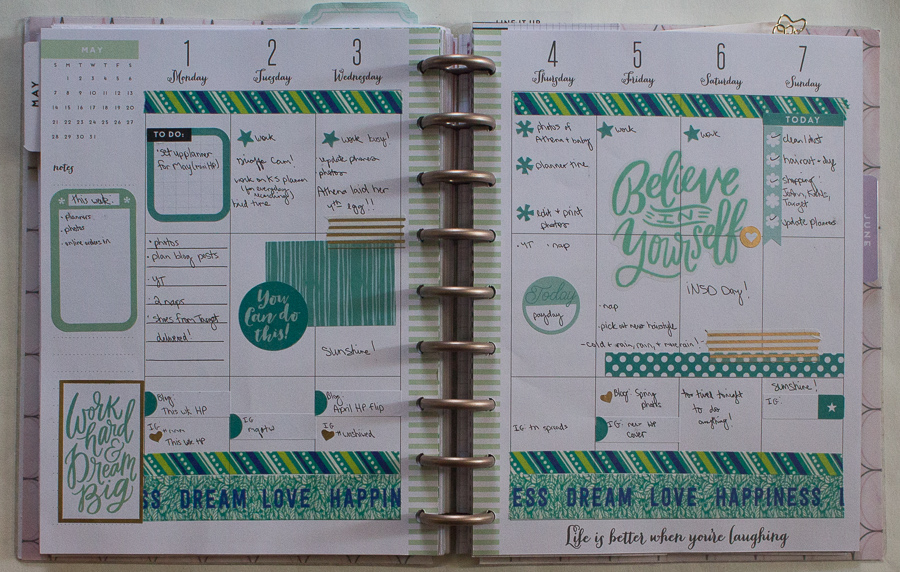 LINE IT UP
MAY
S M T W T F S
1 2 3 4 5 6
7 8 9 10 11 12 13
14 15 16 17 18 19 20
21 22 23 24 25 26 27
28 29 30 31
MAY
notes
This week
· planners
· photos
· online orders in
Work
hard
&
Dream
Big
1
Monday
TO DO:
· Set up planner
for May (mini HP)
· photos
· plan blog posts
· YT
· 2 naps
· shoes from Target
delivered!
Blog:
This wk HP
IG
This wk HP
2
Tuesday
work
Giraffe Cam!
work on K's planner
(for everyday
bad time
You
Can do
this!
IG:
3
Wednesday
work busy!
update planners
photos
Athena laid her
4th egg!!
Sunshine!
Blog:
April HP flip
IG
4
Thursday
photos of
Athena + baby
planner time
edit + print
photos
· YT · nap
Today
payday
IG: tn spreads
5
Friday
work
· nap
· pick out new hairstyle
- cold + rain, rain, + more rain! -
Blog: Spring
photos
IG: new HP
cover
6
Saturday
work
Believe
IN
Yourself
iNSD Day!
too tired tonight
to do
anything!
7
Sunday
TODAY
clean/dust
haircut + dye
shopping:
Target
update planners
Sunshine!
IG:
JUNE
ESS DREAM LOVE HAPPIN
ESS DREAM LOVE HAPPINESS
Life is better when you're laughing